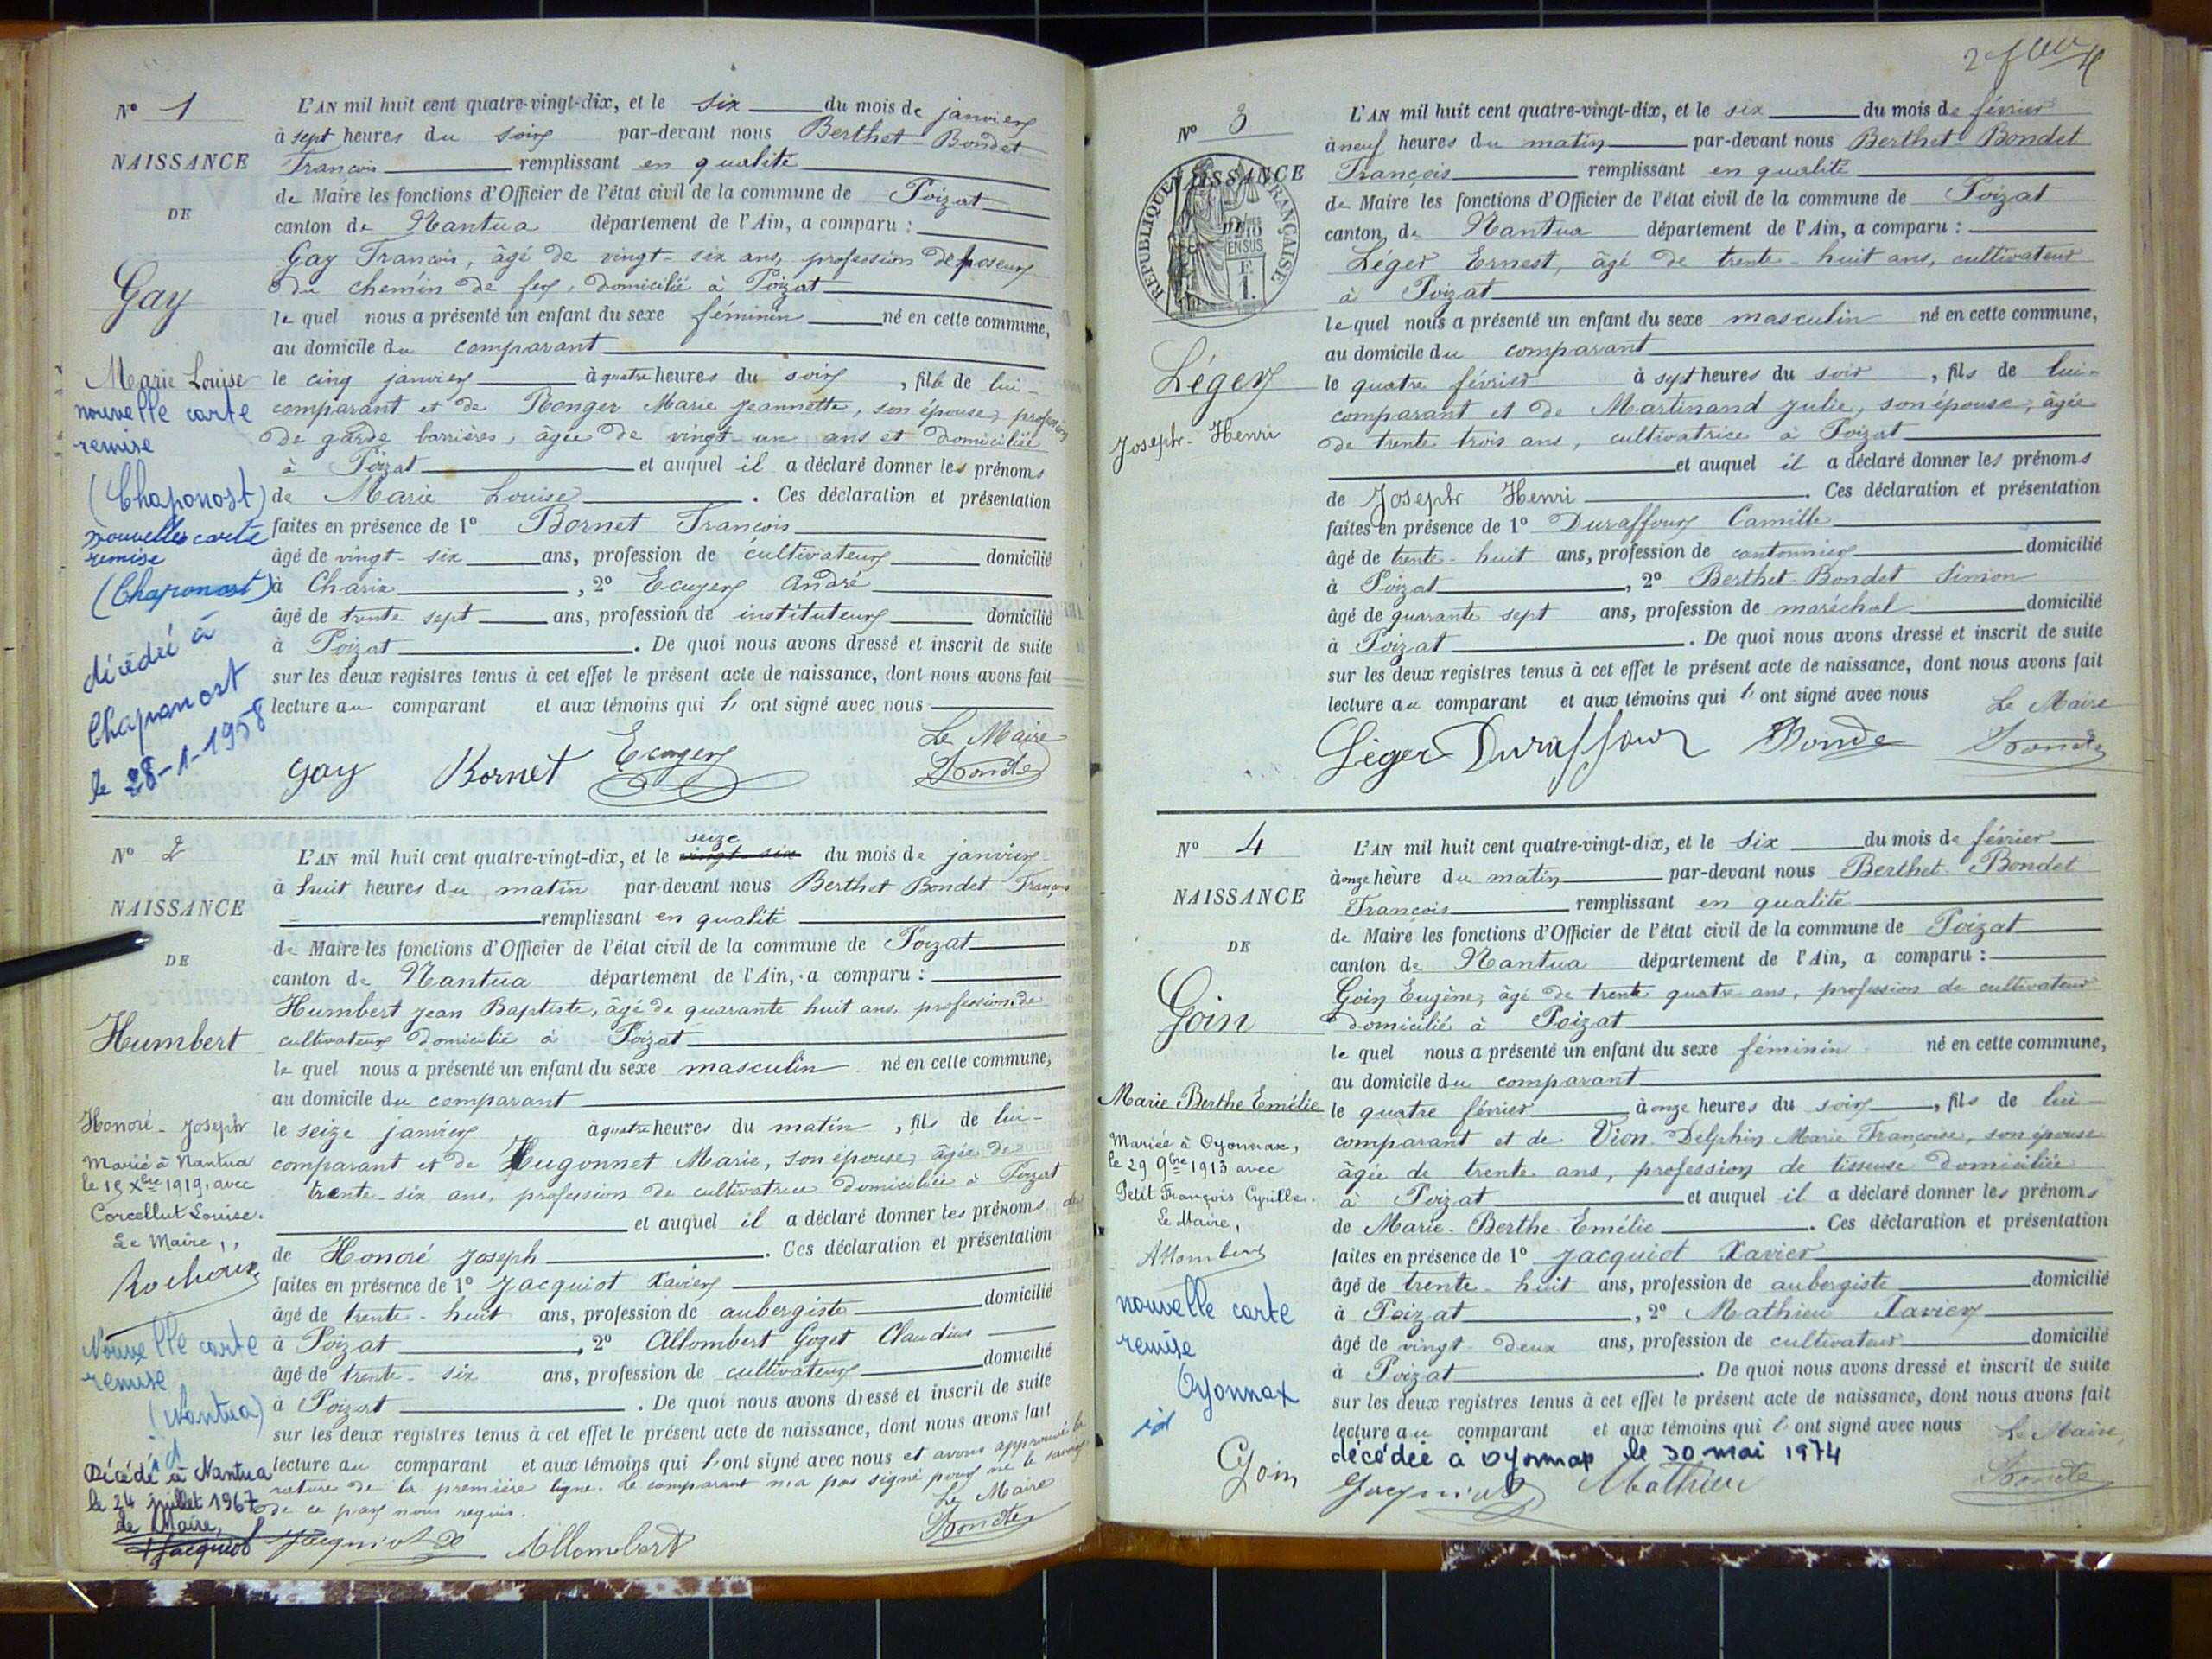 N° 1
NAISSANCE
DE
Gay
Marie Louise
nouvelle carte
remise
(Chaponost)
nouvelle carte
remise
(Chaponost)
décédée à
Chaponost
le 28-1-1958
L'AN mil huit cent quatre-vingt-dix, et le six du mois de janvier
à sept heures du soir par-devant nous Berthet-Bondet
François remplissant en qualité
de Maire les fonctions d'Officier de l'état civil de la commune de Poizat
canton de Nantua département de l'Ain, a comparu :
Gay François, âgé de vingt-six ans, profession de poseur
du chemin de fer, domicilié à Poizat
lequel nous a présenté un enfant du sexe féminin né en cette commune,
au domicile du comparant
le cinq janvier à quatre heures du soir, fille de lui-
comparant et de Ronger Marie Jeannette, son épouse, profession
de garde barrières, âgée de vingt-un ans et domiciliée
à Poizat et auquel il a déclaré donner les prénoms
de Marie Louise. Ces déclaration et présentation
faites en présence de 1° Bornet François
âgé de vingt-six ans, profession de cultivateur domicilié
à Charix, 2° Ecuyer André
âgé de trente sept ans, profession de instituteur domicilié
à Poizat. De quoi nous avons dressé et inscrit de suite
sur les deux registres tenus à cet effet le présent acte de naissance, dont nous avons fait
lecture au comparant et aux témoins qui l'ont signé avec nous
Le Maire
Gay Bornet Ecuyer Bondet
N° 2
NAISSANCE
DE
Humbert
Honoré-Joseph
Marié à Nantua
le 15 Xbre 1919, avec
Corcellut Louise.
Le Maire,
Nouvelle carte
remise
(Nantua)
id
Décédé à Nantua
le 24 juillet 1967
Le Maire,
Jacquiot
seize
L'AN mil huit cent quatre-vingt-dix, et le vingt-six du mois de janvier
à huit heures du matin par-devant nous Berthet Bondet François
remplissant en qualité
de Maire les fonctions d'Officier de l'état civil de la commune de Poizat
canton de Nantua département de l'Ain, a comparu :
Humbert Jean Baptiste, âgé de quarante huit ans, profession de
cultivateur domicilié à Poizat
lequel nous a présenté un enfant du sexe masculin né en cette commune,
au domicile du comparant
le seize janvier à quatre heures du matin, fils de lui-
comparant et de Hugonnet Marie, son épouse, âgée de
trente-six ans, profession de cultivatrice domiciliée à Poizat
et auquel il a déclaré donner les prénoms de
de Honoré Joseph. Ces déclaration et présentation
faites en présence de 1° Jacquiot Xavier
âgé de trente-huit ans, profession de aubergiste domicilié
à Poizat, 2° Allombert Goget Claudius
âgé de trente-six ans, profession de cultivateur domicilié
à Poizat. De quoi nous avons dressé et inscrit de suite
sur les deux registres tenus à cet effet le présent acte de naissance, dont nous avons fait
lecture au comparant et aux témoins qui l'ont signé avec nous et avons approuvé la
rature de la première ligne. Le comparant n'a pas signé pour ne le savoir
de ce par nous requis.
Le Maire
Jacquiot Allombert Bondet
2 feuil
N° 3
NAISSANCE
DE
RÉPUBLIQUE FRANÇAISE
Léger
Joseph-Henri
L'AN mil huit cent quatre-vingt-dix, et le six du mois de février
à neuf heures du matin par-devant nous Berthet-Bondet
François remplissant en qualité
de Maire les fonctions d'Officier de l'état civil de la commune de Poizat
canton de Nantua département de l'Ain, a comparu :
Léger Ernest, âgé de trente-huit ans, cultivateur
à Poizat
lequel nous a présenté un enfant du sexe masculin né en cette commune,
au domicile du comparant
le quatre février à sept heures du soir, fils de lui-
comparant et de Martinand Julie, son épouse, âgée
de trente trois ans, cultivatrice à Poizat
et auquel il a déclaré donner les prénoms
de Joseph Henri. Ces déclaration et présentation
faites en présence de 1° Duraffour Camille
âgé de trente-huit ans, profession de cantonnier domicilié
à Poizat, 2° Berthet-Bondet Simon
âgé de quarante sept ans, profession de maréchal domicilié
à Poizat. De quoi nous avons dressé et inscrit de suite
sur les deux registres tenus à cet effet le présent acte de naissance, dont nous avons fait
lecture au comparant et aux témoins qui l'ont signé avec nous
Le Maire
Léger Duraffour Bondet Bondet
N° 4
NAISSANCE
DE
Goin
Marie Berthe Emélie
Mariée à Oyonnax,
le 29 9bre 1913 avec
Petit François Cyrille.
Le Maire,
Allombert
nouvelle carte
remise
Oyonnax
id
L'AN mil huit cent quatre-vingt-dix, et le six du mois de février
à onze heure du matin par-devant nous Berthet-Bondet
François remplissant en qualité
de Maire les fonctions d'Officier de l'état civil de la commune de Poizat
canton de Nantua département de l'Ain, a comparu :
Goin Eugène, âgé de trente quatre ans, profession de cultivateur
domicilié à Poizat
lequel nous a présenté un enfant du sexe féminin né en cette commune,
au domicile du comparant
le quatre février à onze heures du soir, fils de lui-
comparant et de Vion-Delphin Marie Françoise, son épouse
âgée de trente ans, profession de tisseuse domiciliée
à Poizat et auquel il a déclaré donner les prénoms
de Marie-Berthe-Emélie. Ces déclaration et présentation
faites en présence de 1° Jacquiot Xavier
âgé de trente-huit ans, profession de aubergiste domicilié
à Poizat, 2° Mathieu Xavier
âgé de vingt-deux ans, profession de cultivateur domicilié
à Poizat. De quoi nous avons dressé et inscrit de suite
sur les deux registres tenus à cet effet le présent acte de naissance, dont nous avons fait
lecture au comparant et aux témoins qui l'ont signé avec nous
Le Maire,
décédée à Oyonnax le 30 mai 1974
Goin Jacquiot Mathieu Bondet